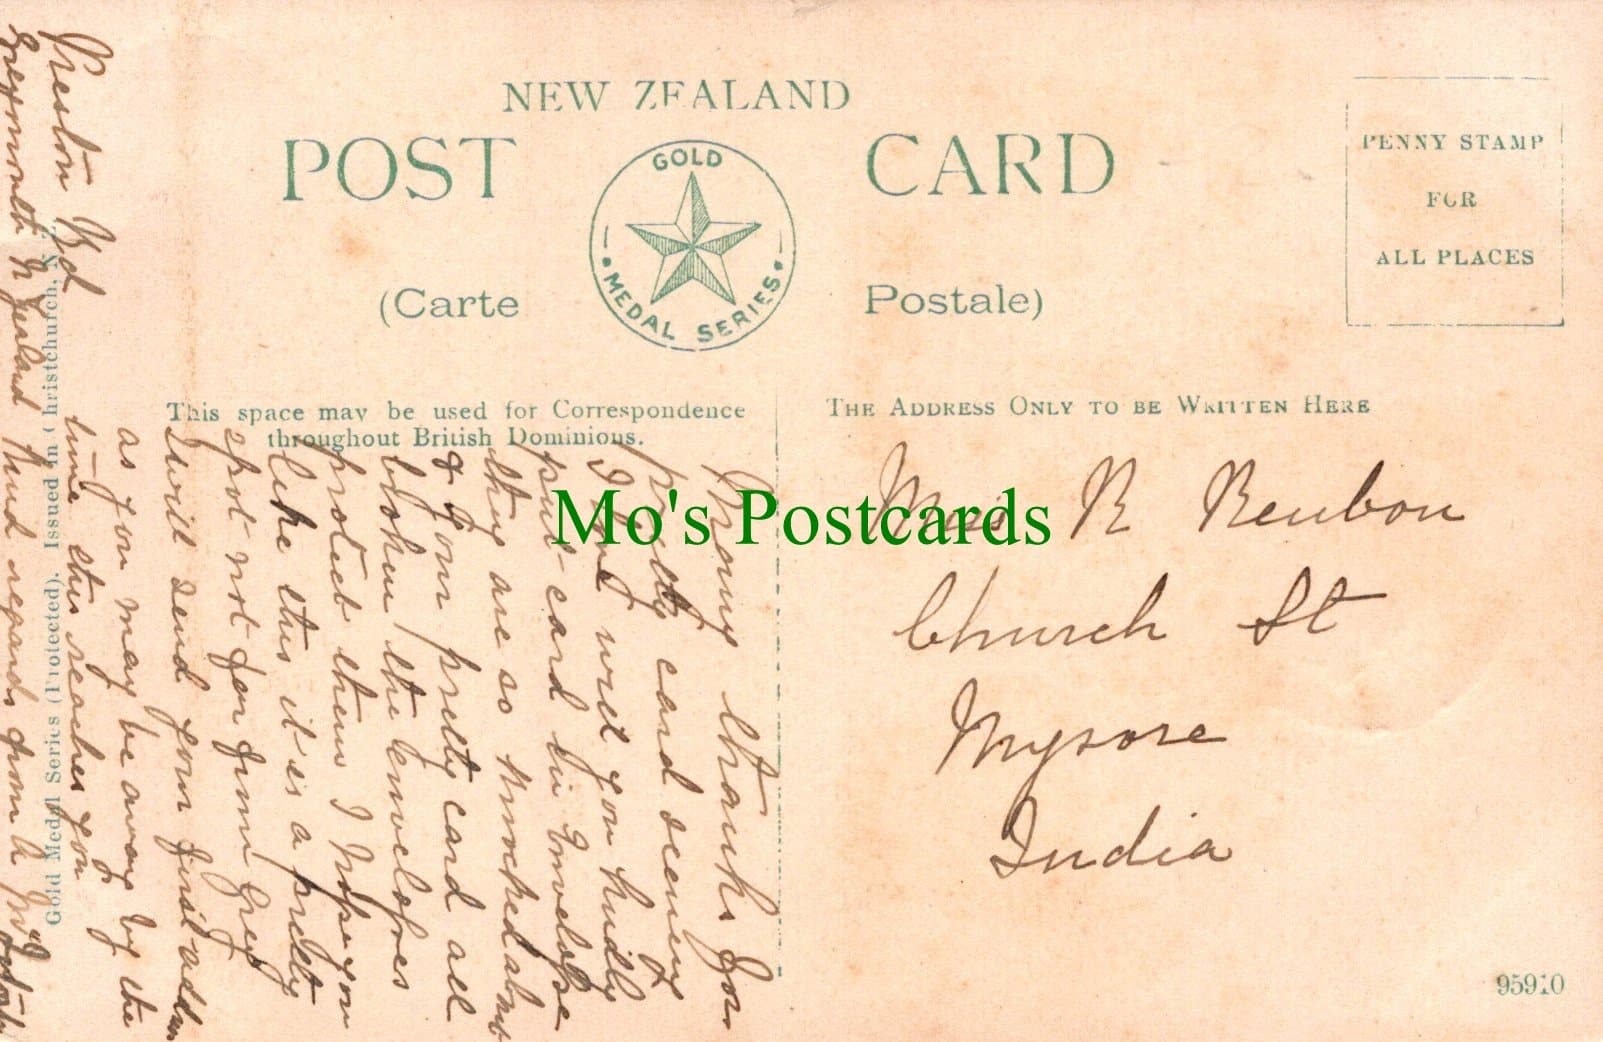 NEW ZEALAND
POST CARD
GOLD
MEDAL SERIES
(Carte Postale)
PENNY STAMP
FOR
ALL PLACES
This space may be used for Correspondence
throughout British Dominions.
THE ADDRESS ONLY TO BE WRITTEN HERE
Mo's Postcards
Miss R Reubon
Church St
Mysore
India
95910
Many thanks for
pretty card seeming
I
wish you kindly
put card in Envelope
they are so knocked about
& your pretty card all
broken the envelopes
protect them I hope you
like this it is a pretty
spot not far from Grey
I will send your first address
as you may be away by the
time this reaches you
Kind regards from
Preston Rd
Greymouth N Zealand
Gold Medal Series (Protected). Issued in Christchurch, N.Z.